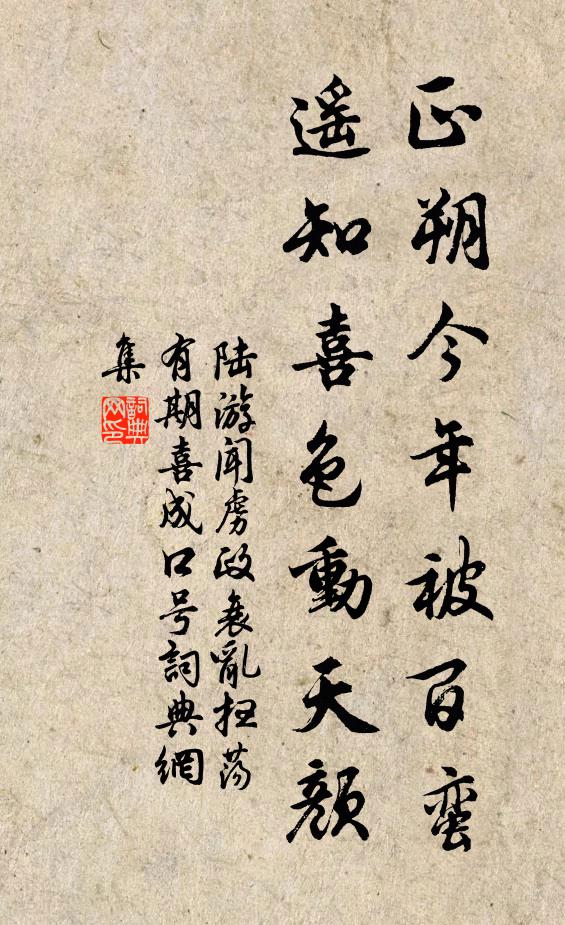 正朔今年被百蛮
遥知喜色動天颜
陆游闻虏政衰亂扫荡
有期喜成口号詞典網
集
詞典
网印